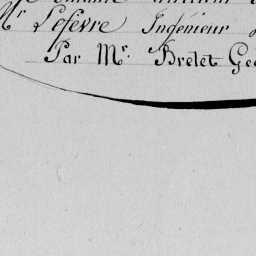 Mr Lefèvre Ingénieur
Par Mr. Brelet Geo